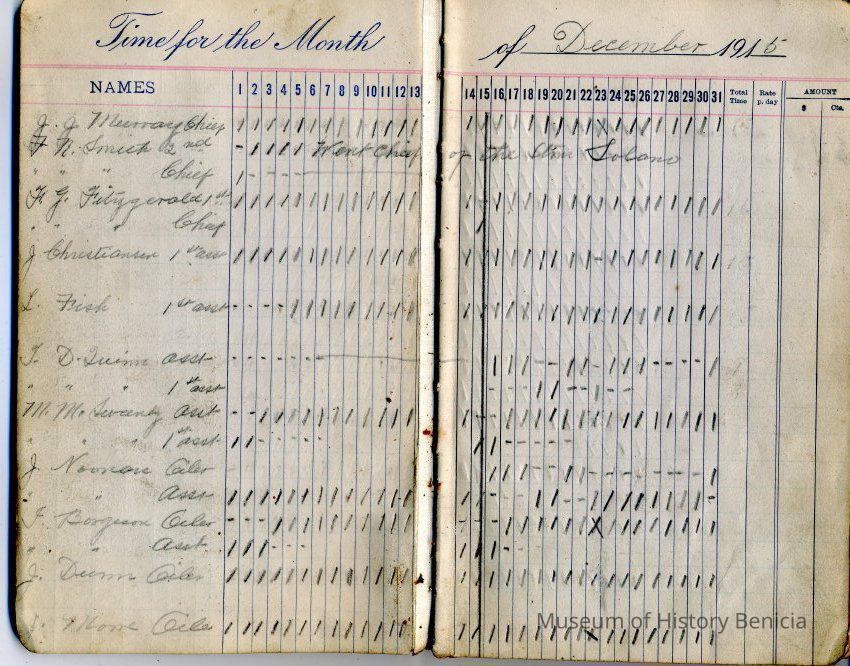 Time for the Month of December 1915
NAMES 1 2 3 4 5 6 7 8 9 10 11 12 13 14 15 16 17 18 19 20 21 22 23 24 25 26 27 28 29 30 31 Total Time Rate p. day AMOUNT $ Cts.
J. J. Murray Chief
N. Smith 2nd Went Chief of the Stmr Solano
" " " Chief
F. G. Fitzgerald 1st
" " " Chief
J Christiansen 1st asst
L. Fish 1st asst
T. D. Quinn asst
" " " 1st asst
M. McSweeney asst
" " " 1st asst
J Noonan Oiler
" " Asst
F. Borgeson Oiler
" " Asst
J. Dunn Oiler
Oiler
Museum of History Benicia